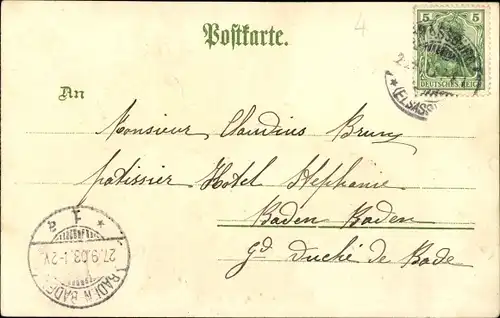 4
Postkarte.
5
DEUTSCHES REICH
(ELSASS
An
Monsieur Claudius Bruny
patissier Hotel Stephanie
Baden Baden
Gd Duché de Bade
27.9.03.1-2V.
BADEN BADEN